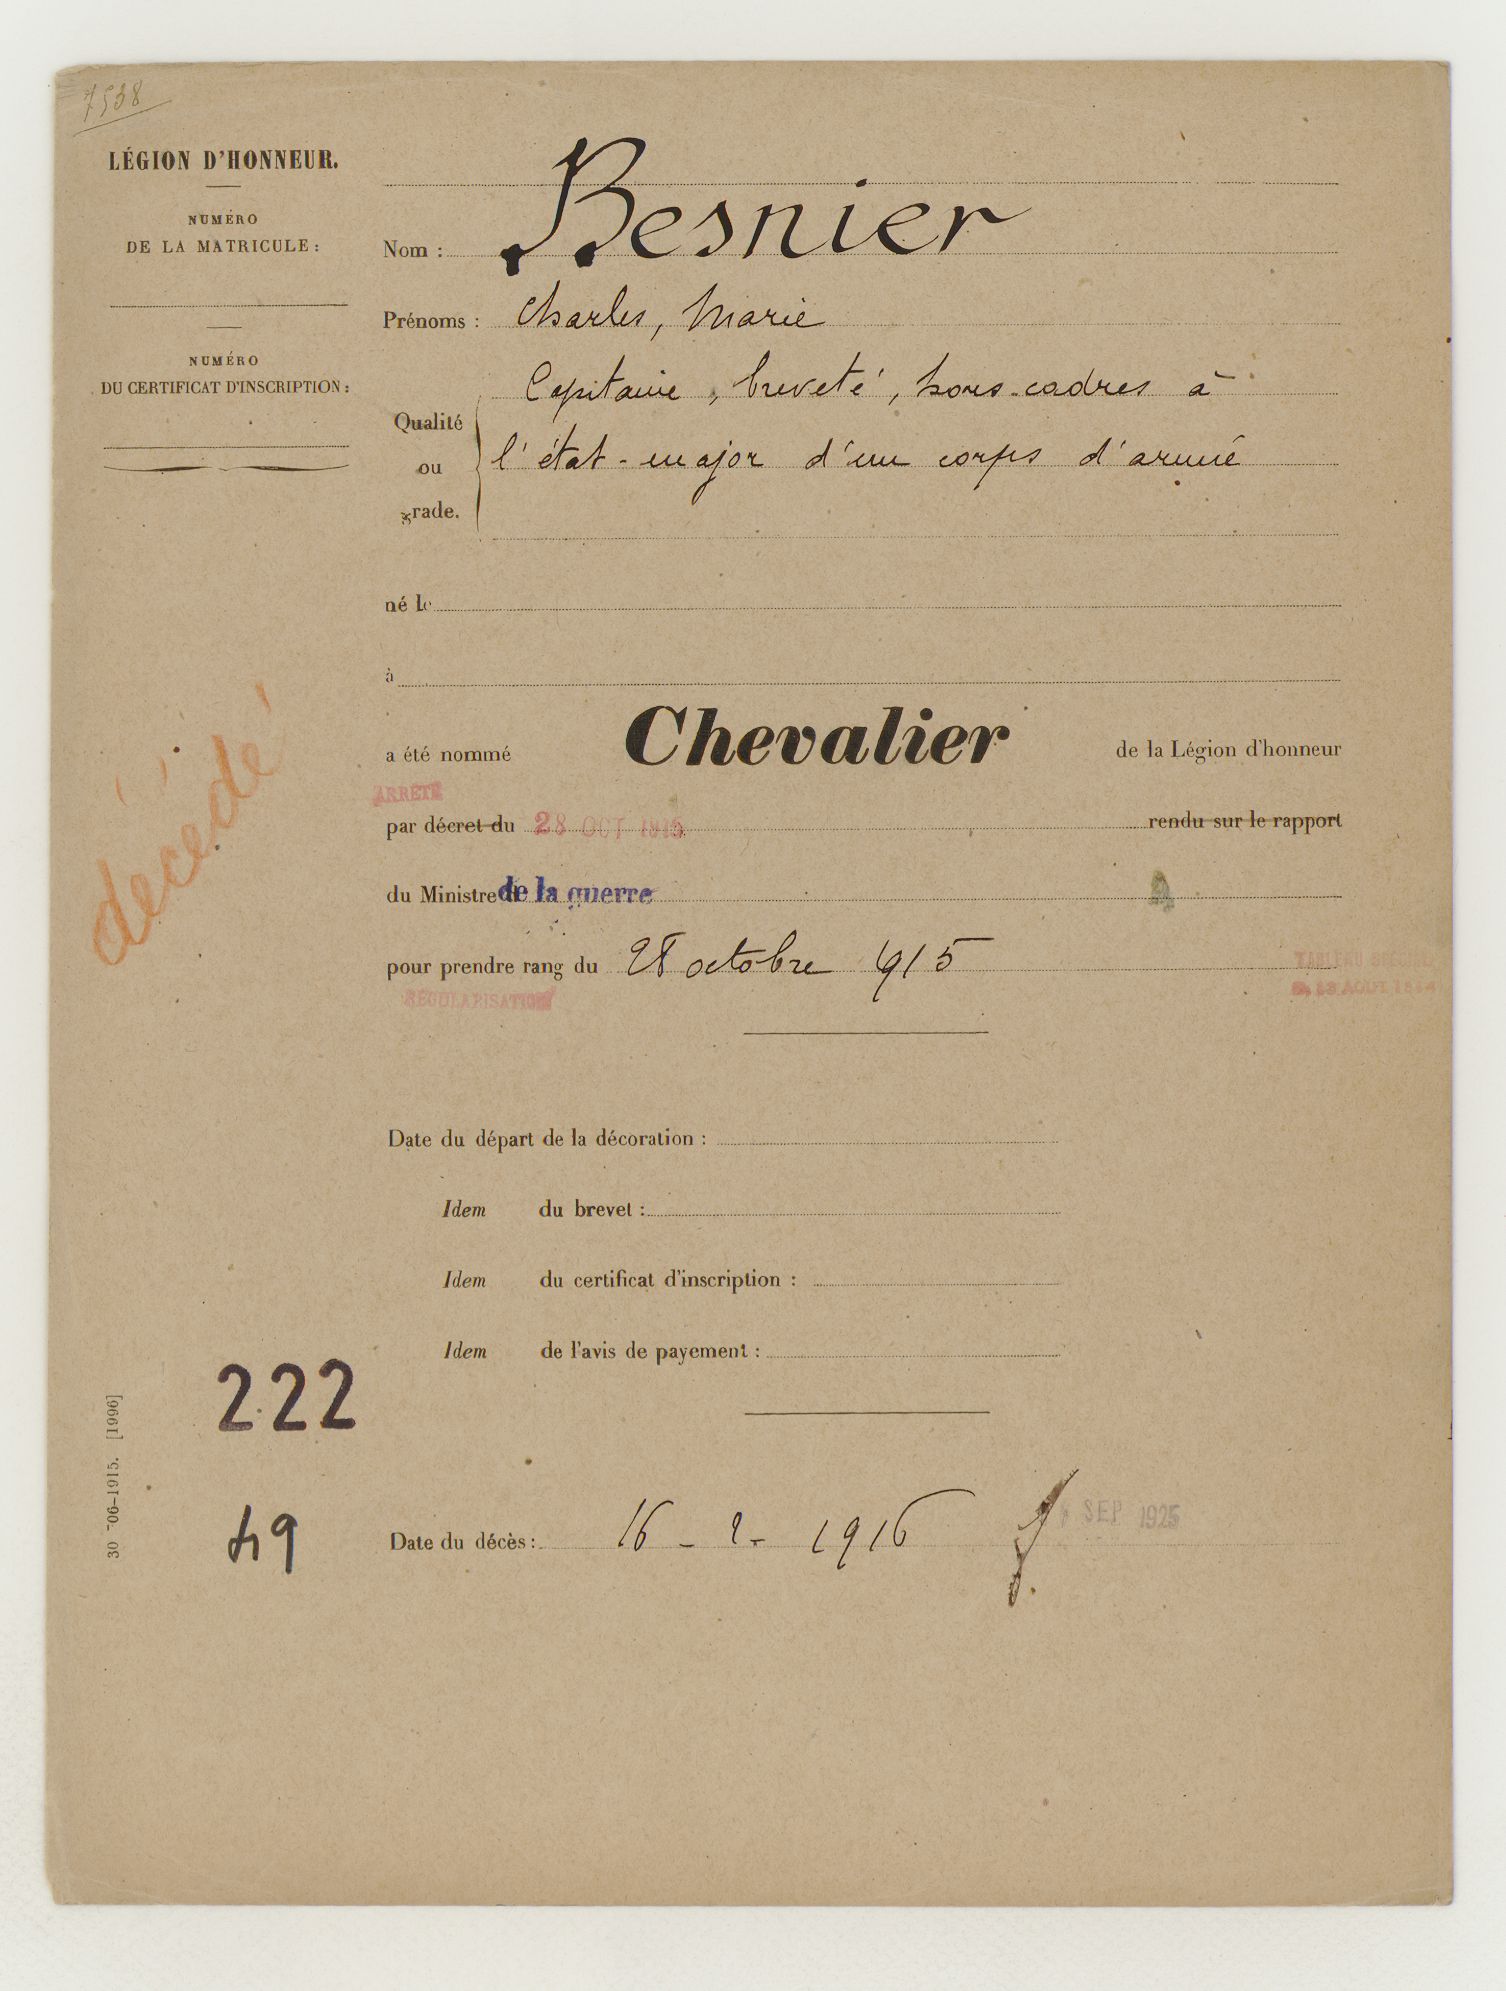 7538
LÉGION D'HONNEUR.
NUMÉRO
DE LA MATRICULE :
NUMÉRO
DU CERTIFICAT D'INSCRIPTION :
Nom : Besnier
Prénoms : Charles, Marie
Qualité
ou
grade.
Capitaine, breveté, hors-cadres à
l'état-major d'un corps d'armée
né le
à
décédé
a été nommé Chevalier de la Légion d'honneur
ARRÊTÉ
par décret du 28 OCT 1915 rendu sur le rapport
du Ministre de la guerre
pour prendre rang du 28 octobre 1915
RÉGULARISATION
TABLEAU SPÉCIAL
D. 13 AOUT 1914
Date du départ de la décoration :
Idem du brevet :
Idem du certificat d'inscription :
Idem de l'avis de payement :
222
49
30-706-1915. [1996]
Date du décès : 16 - 2 - 1916
SEP 1925